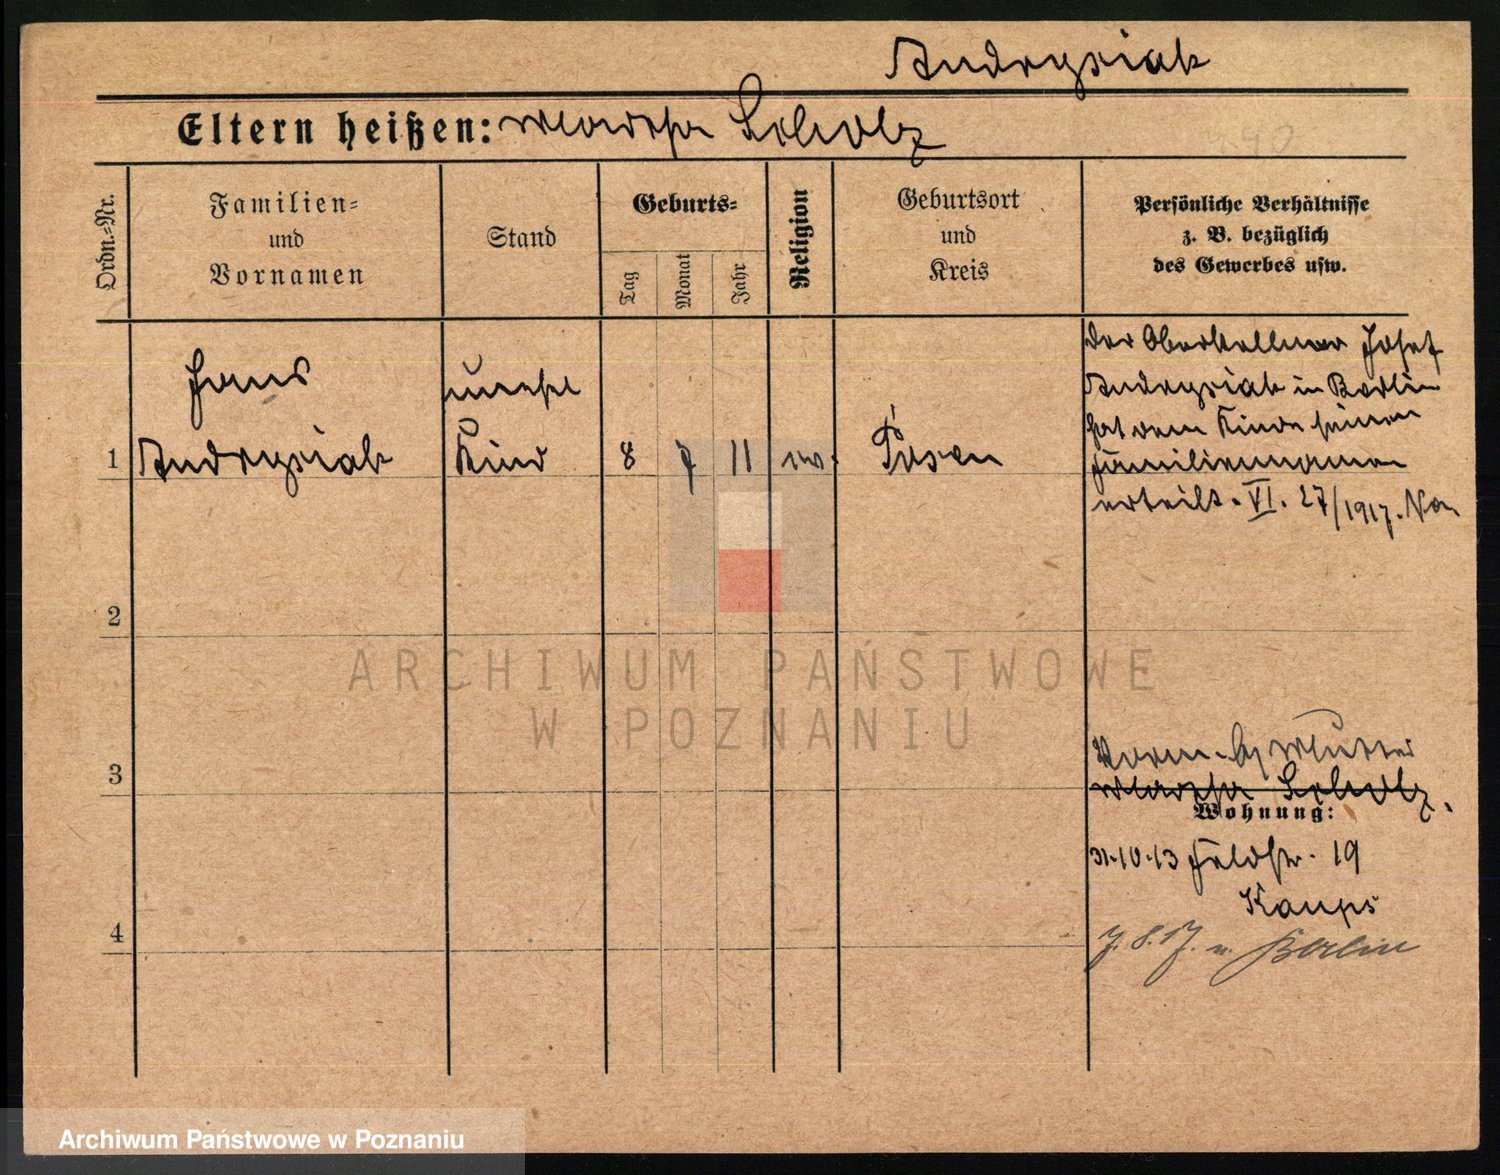 Andrysiak
Eltern heißen: Martha Scholz
Ordn.-Nr.
Familien-
und
Vornamen
Stand
Geburts-
Tag
Monat
Jahr
Religion
Geburtsort
und
Kreis
Persönliche Verhältnisse
z. B. bezüglich
des Gewerbes usw.
1
Hans
Andrysiak
unehel
Kind
8
7
11
Posen
Der Oberkellner Josef
Andrysiak in Berlin
hat dem Kinde seinen
Familiennamen
erteilt. VI. 27/1917.
2
3
Mutter
Martha Scholz.
Wohnung:
31.10.13 Feldstr. 19
4
7.8.17. n. Berlin
ARCHIWUM PAŃSTWOWE
W POZNANIU
Archiwum Państwowe w Poznaniu